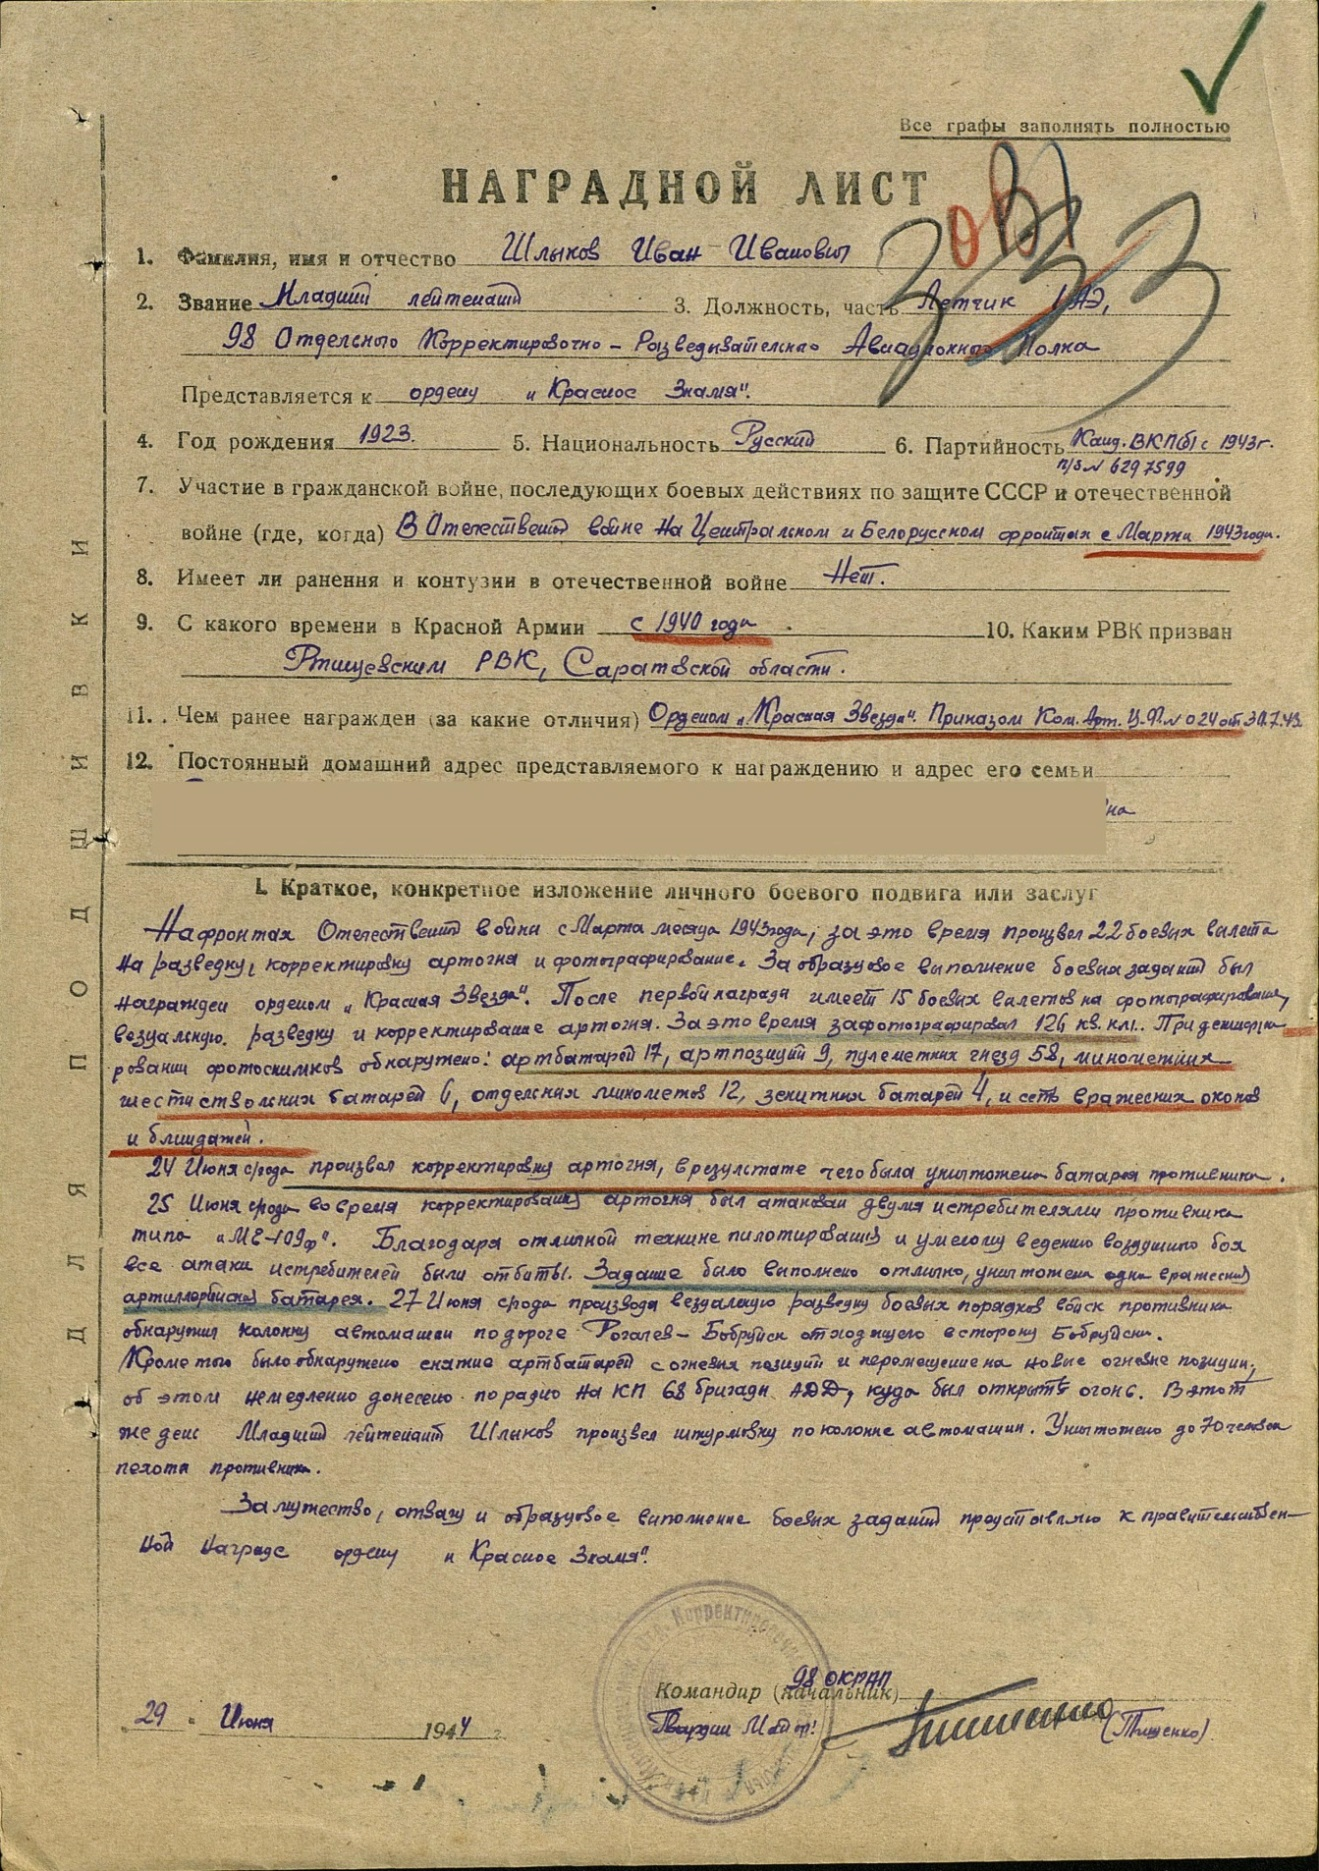 Все графы заполнять полностью
НАГРАДНОЙ ЛИСТ
1. Фамилия, имя и отчество Шлыков Иван Иванович
2. Звание Младший лейтенант 3. Должность, часть Летчик 1 АЭ,
98 Отдельного Корректировочно-Разведывательного Авиационного Полка
Представляется к ордену "Красное Знамя".
4. Год рождения 1923. 5. Национальность Русский 6. Партийность Канд. ВКП(б) с 1943 г.
п/б № 6297599
7. Участие в гражданской войне, последующих боевых действиях по защите СССР и отечественной
войне (где, когда) В Отечественной войне на Центральном и Белорусском фронтах с Марта 1943 года.
8. Имеет ли ранения и контузии в отечественной войне Нет.
9. С какого времени в Красной Армии с 1940 года 10. Каким РВК призван
Ртищевским РВК, Саратовской области.
11. Чем ранее награжден (за какие отличия) Орденом "Красная Звезда". Приказом Ком. Арт. Ц.Ф. № 024 от 30.7.43.
12. Постоянный домашний адрес представляемого к награждению и адрес его семьи
на
I. Краткое, конкретное изложение личного боевого подвига или заслуг
На фронтах Отечественной войны с Марта месяца 1943 года, за это время произвел 22 боевых вылета
на разведку, корректировку артогня и фотографирование. За образцовое выполнение боевых заданий был
награжден орденом "Красная Звезда". После первой награды имеет 15 боевых вылетов на фотографирование,
везуальную разведку и корректирование артогня. За это время зафотографировал 126 кв. км. При дешифри
ровании фотоснимков обнаружено: артбатарей 17, артпозиций 9, пулеметных гнезд 58, минометных
шестиствольных батарей 6, отдельных минометов 12, зенитных батарей 4, и сеть вражеских окопов
и блиндажей.
24 Июня с/года произвел корректировку артогня, в результате чего была уничтожена батарея противника.
25 Июня с/года во время корректирования артогня был атакован двумя истребителями противника
типа "МЕ-109ф". Благодаря отличной технике пилотирования и умелому ведению воздушного боя
все атаки истребителей были отбиты. Задание было выполнено отлично, уничтожена одна вражеская
артиллерийская батарея. 27 Июня с/года производя везуальную разведку боевых порядков войск противника
обнаружил колонну автомашин по дороге Рогачев-Бобруйск отходящего в сторону Бобруйска.
Кроме того было обнаружено снятие артбатарей с огневых позиций и перемещение на новые огневые позиции,
об этом немедленно донесено по радио на КП 68 бригады АДД, куда был открыт огонь. В этот
же день Младший лейтенант Шлыков произвел штурмовку по колонне автомашин. Уничтожено до 70 человек
пехоты противника.
За мужество, отвагу и образцовое выполнение боевых заданий представляю к правительствен-
ной награде ордену "Красное Знамя".
Командир (начальник) 98 ОКРАП
29 Июня 1944 г. Гвардии Майор: (Тищенко)
ДЛЯ ПОДШИВКИ